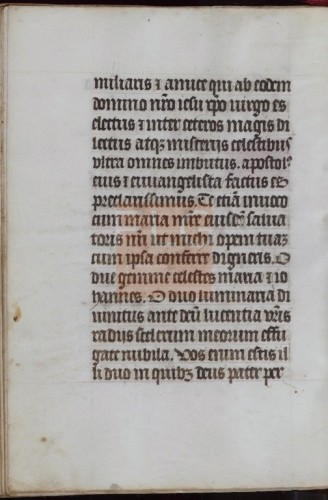 miliaris & amice qui ab eodem
domino nr̄o iesu xp̄o virgo es
electus & inter ceteros magis di
lectus atqꝫ misteriis celestibus
ultra omnes imbutus. apostolꝰ
eius & euuangelista factus es
preclarissimus. Te etiā inuoco
cum maria mr̄e eiusdē salua
toris nr̄i ut michi opem tuaꝫ
cum ipsa conferre digneris. O
due gemme celestes maria & io
hannes. O duo luminaria di
uinitus ante deū lucentia vr̄is
radiis scelerum meorum effu
gate nubila. Vos enim estis il
li duo in quibꝫ deus pater per